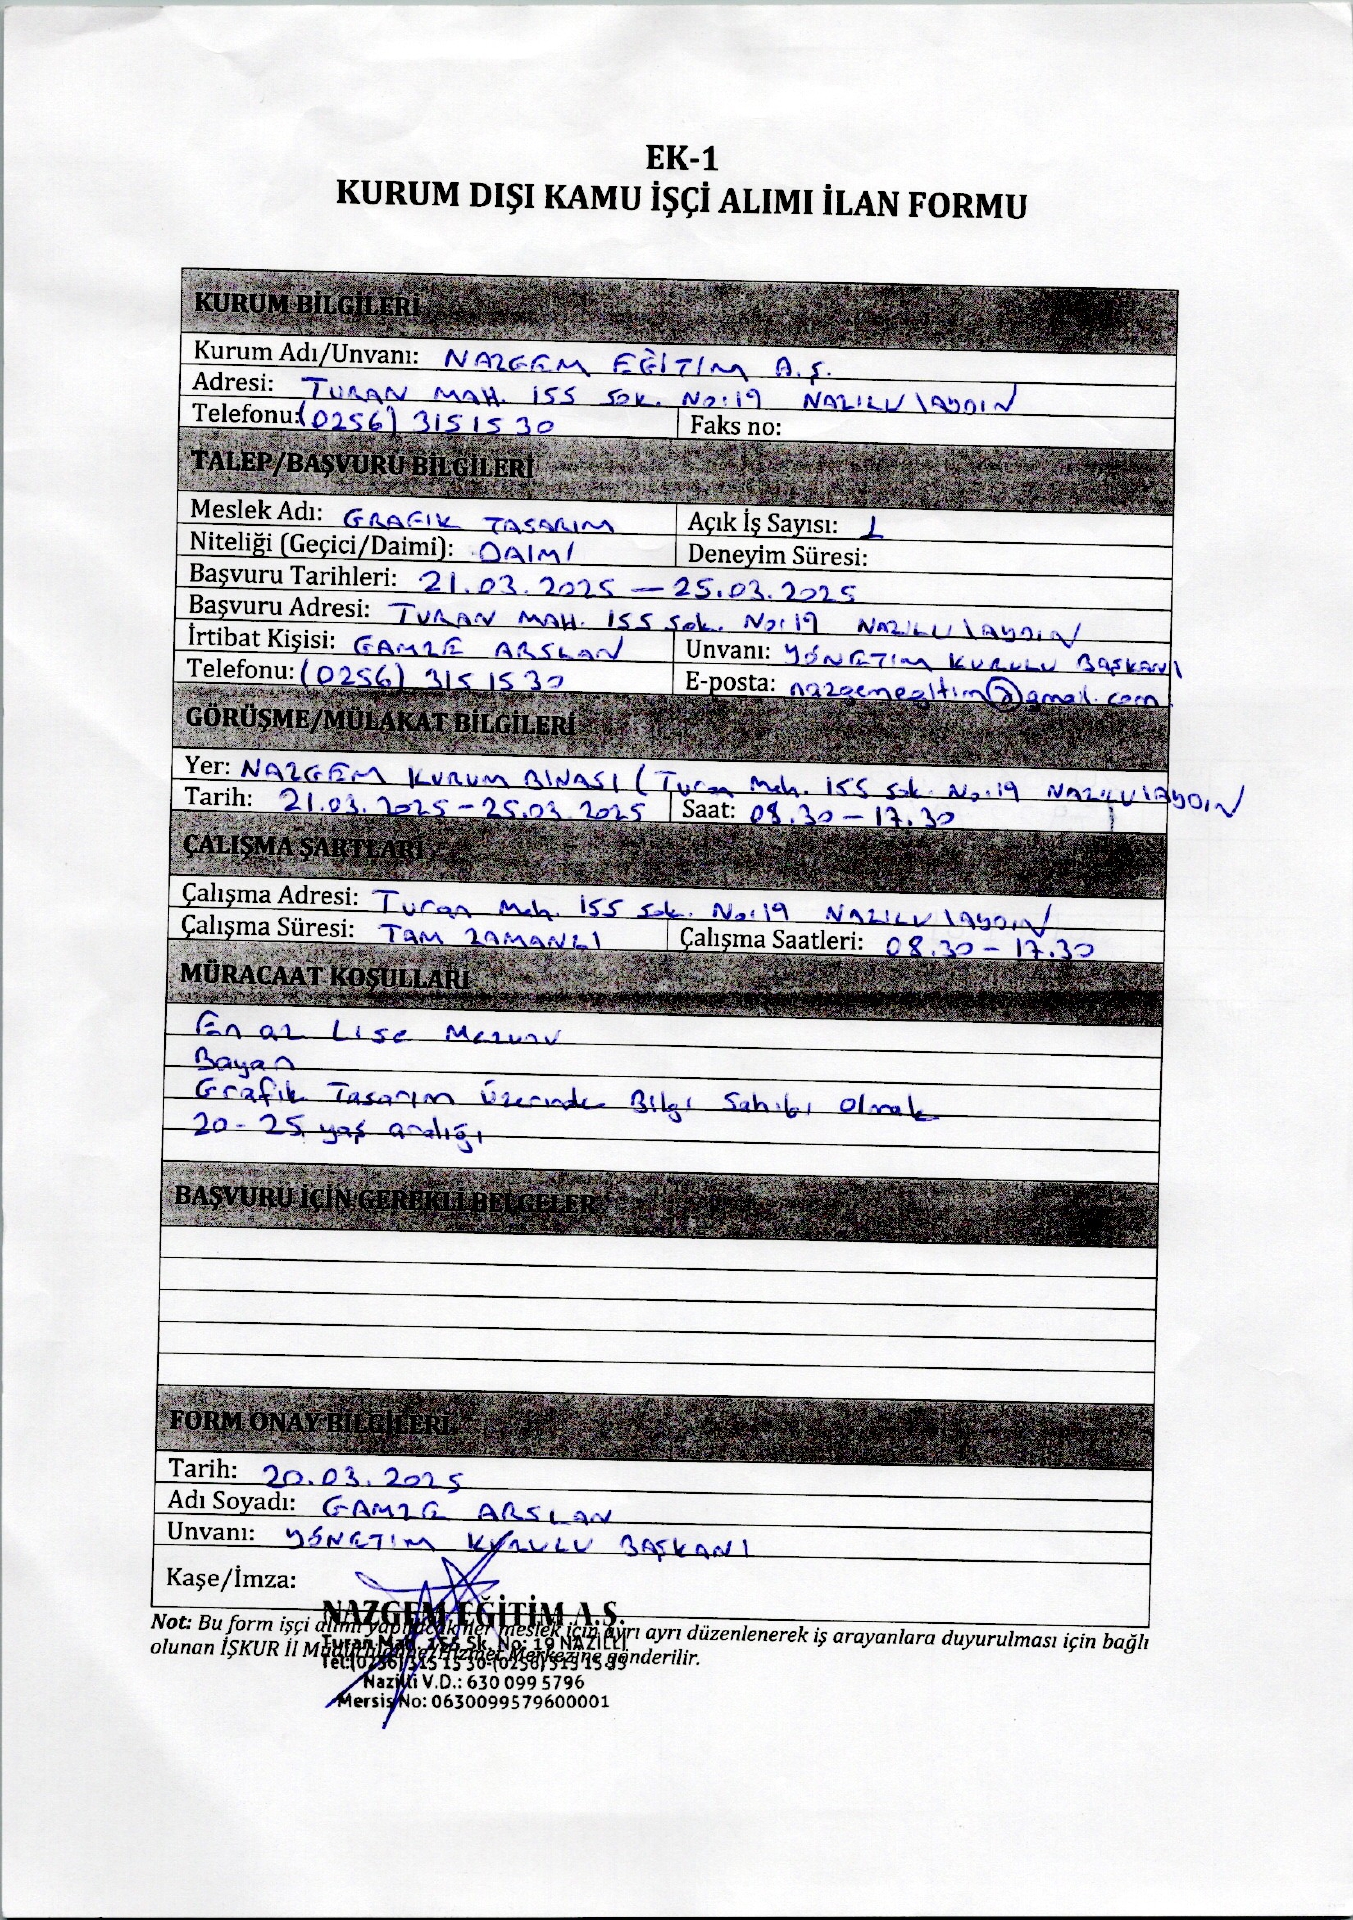 EK-1
KURUM DIŞI KAMU İŞÇİ ALIMI İLAN FORMU
KURUM BİLGİLERİ
Kurum Adı/Unvanı: NAZGEM EĞİTİM A.Ş.
Adresi: TURAN MAH. 155 SOK. NO:19 NAZİLLİ \AYDIN
Telefonu: (0256) 315 15 30 Faks no:
TALEP/BAŞVURU BİLGİLERİ
Meslek Adı: GRAFIK TASARIM Açık İş Sayısı: 1
Niteliği (Geçici/Daimi): DAIMI Deneyim Süresi:
Başvuru Tarihleri: 21.03.2025 — 25.03.2025
Başvuru Adresi: TURAN MAH. 155 Sok. No:19 NAZILLI \AYDIN
İrtibat Kişisi: GAMZE ARSLAN Unvanı: YÖNETIM KURULU BAŞKANI
Telefonu: (0256) 315 15 30 E-posta: nazgemegitim@gmail.com
GÖRÜŞME/MÜLAKAT BİLGİLERİ
Yer: NAZGEM KURUM BINASI (Turan Mah. 155 sok. No:19 NAZILLI \AYDIN
Tarih: 21.03.2025-25.03.2025 Saat: 08.30-17.30
ÇALIŞMA ŞARTLARI
Çalışma Adresi: Turan Mah. 155 sok. No:19 NAZILLI \AYDIN
Çalışma Süresi: TAM ZAMANLI Çalışma Saatleri: 08.30-17.30
MÜRACAAT KOŞULLARI
En az Lise Mezunu
Bayan
Grafik Tasarım Üzerinde Bilgi Sahibi Olmak
20-25 yaş aralığı
BAŞVURU İÇİN GEREKLİ BELGELER
FORM ONAY BİLGİLERİ
Tarih: 20.03.2025
Adı Soyadı: GAMZE ARSLAN
Unvanı: YÖNETIM KURULU BAŞKANI
Kaşe/İmza:
NAZGEM EĞİTİM A.Ş.
Not: Bu form işçi alımı yapılacak her meslek için ayrı ayrı düzenlenerek iş arayanlara duyurulması için bağlı
Turan Mah. 155 Sk. No: 19 NAZİLLİ
olunan İŞKUR İl Müdürlüğüne/Hizmet Merkezine gönderilir.
Tel:(0256) 315 15 30-(0256) 315 15 35
Nazilli V.D.: 630 099 5796
Mersis No: 0630099579600001